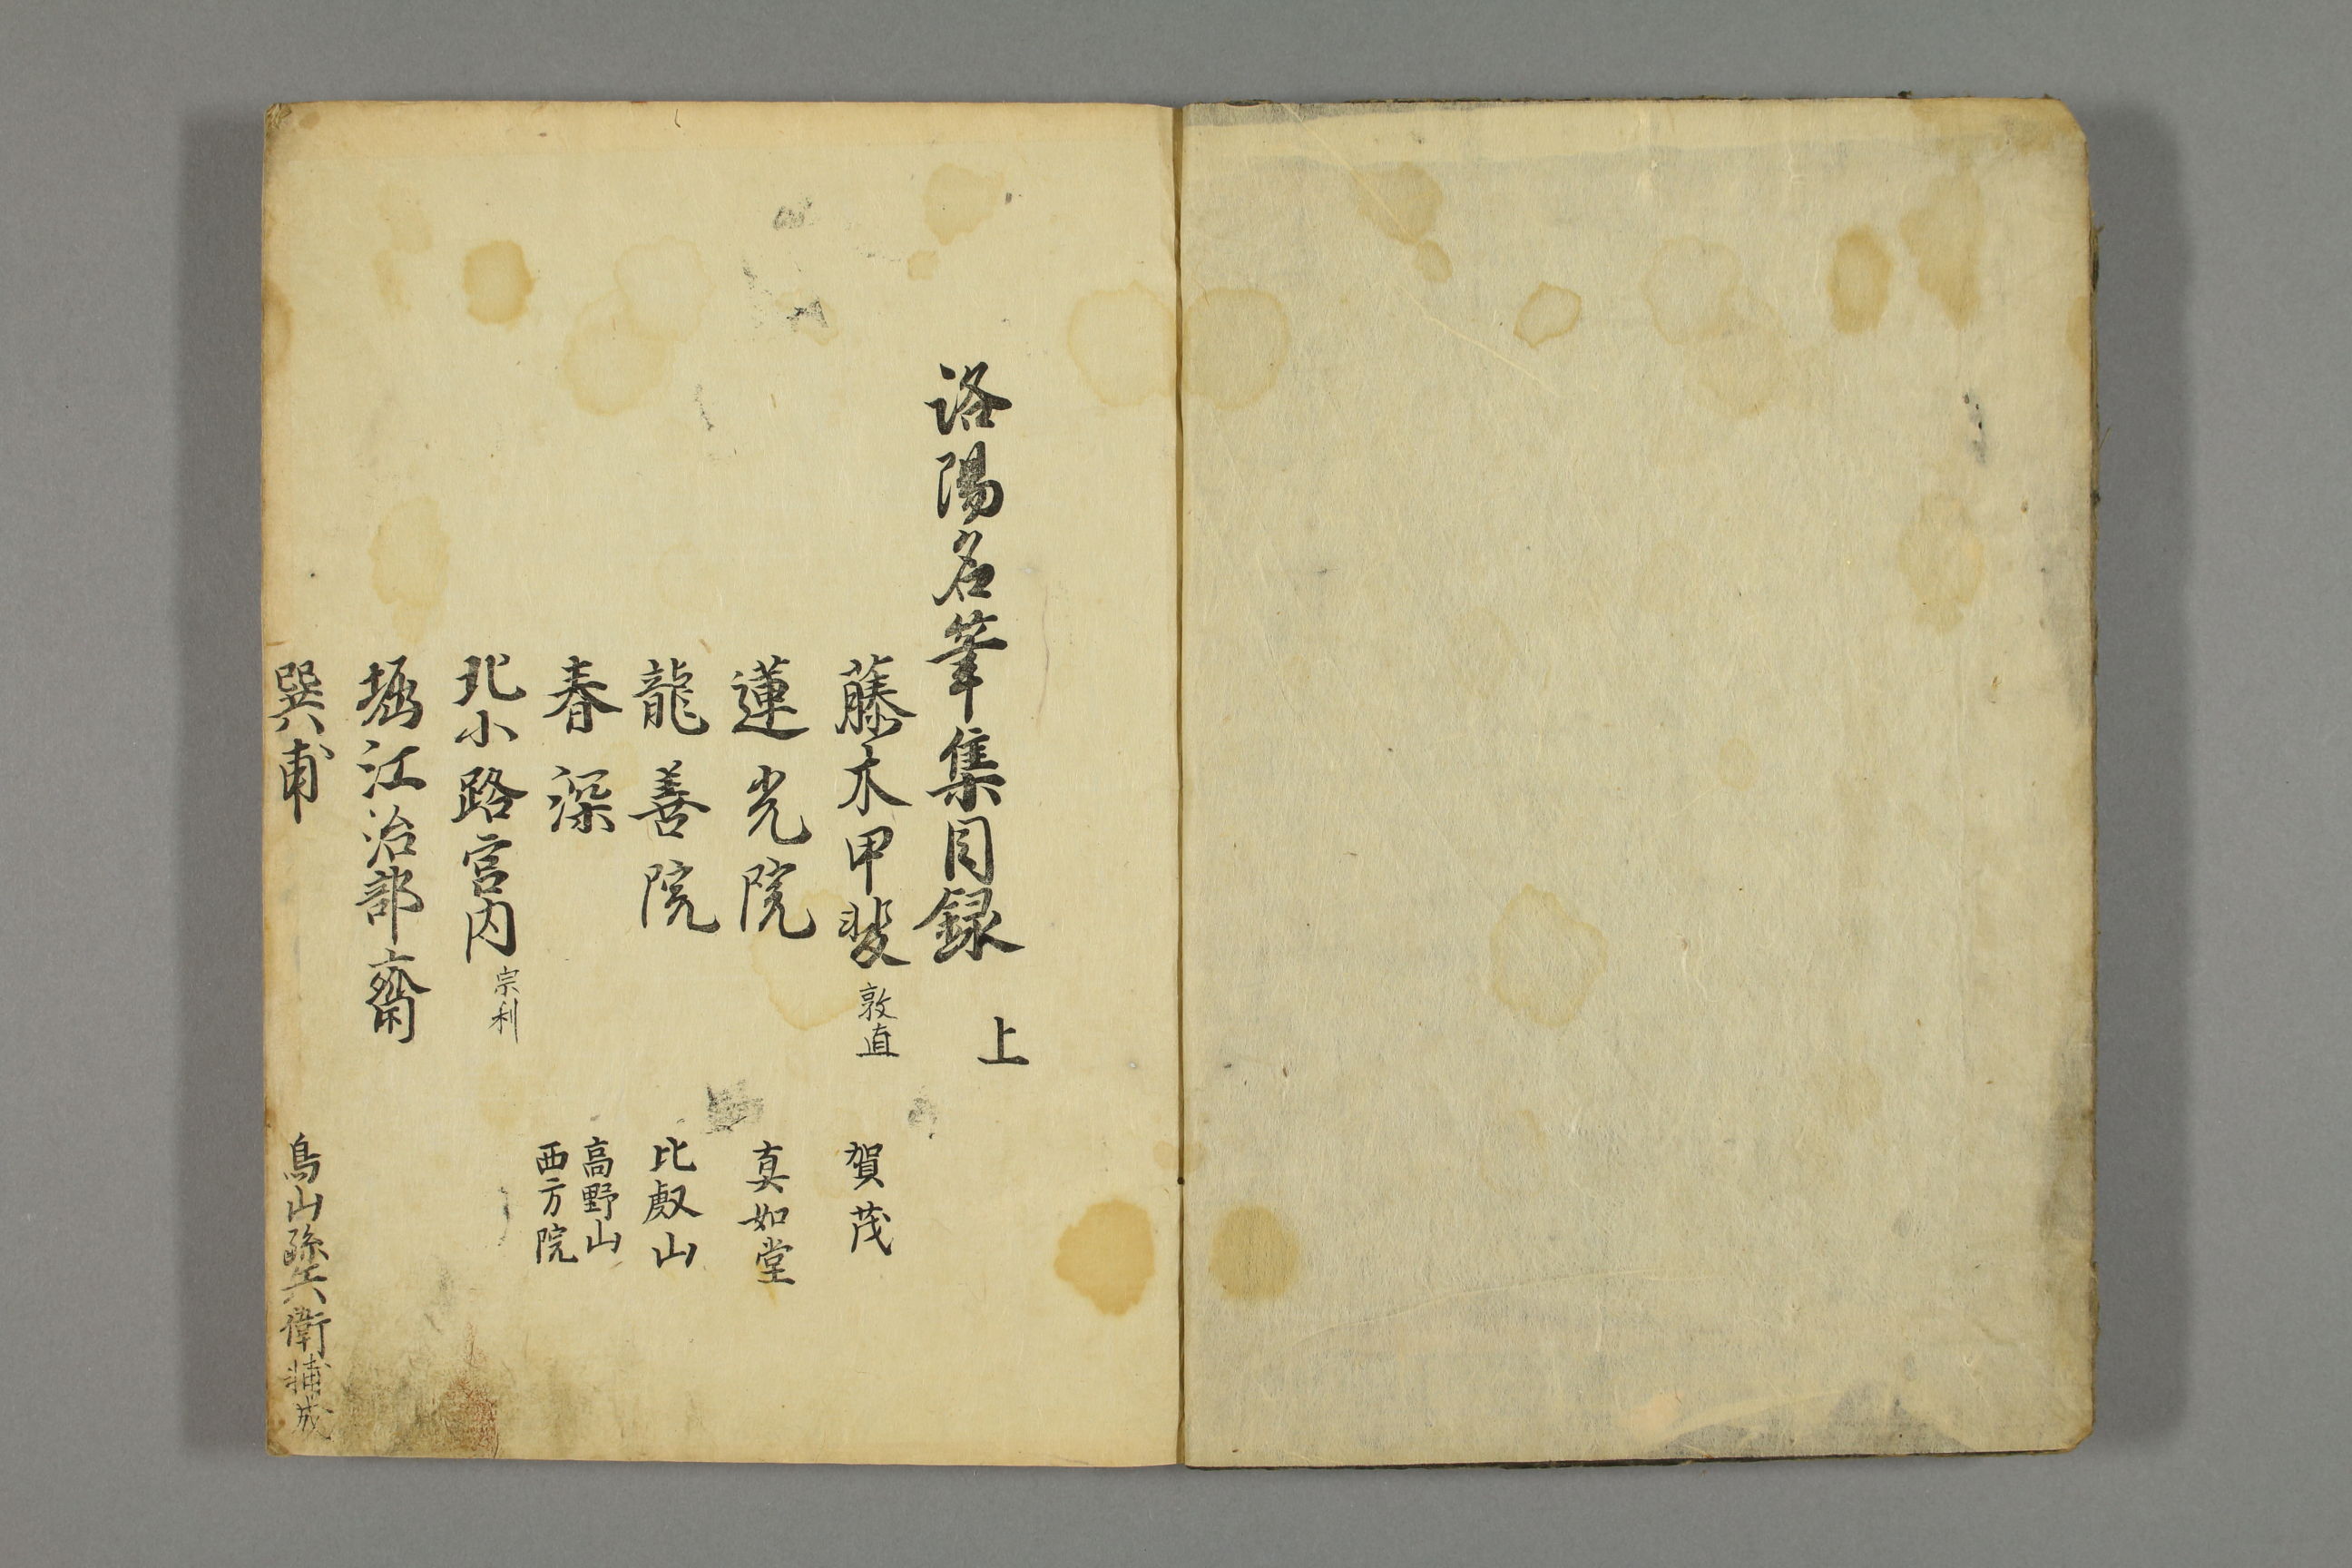 洛陽名筆集目録 上
藤木甲斐 敦直 賀茂
蓮光院 真如堂
龍善院 比叡山
春深 高野山
西方院
北小路宮内 宗利
堀江治部齋
巽甫 鳥山孫兵衛輔成